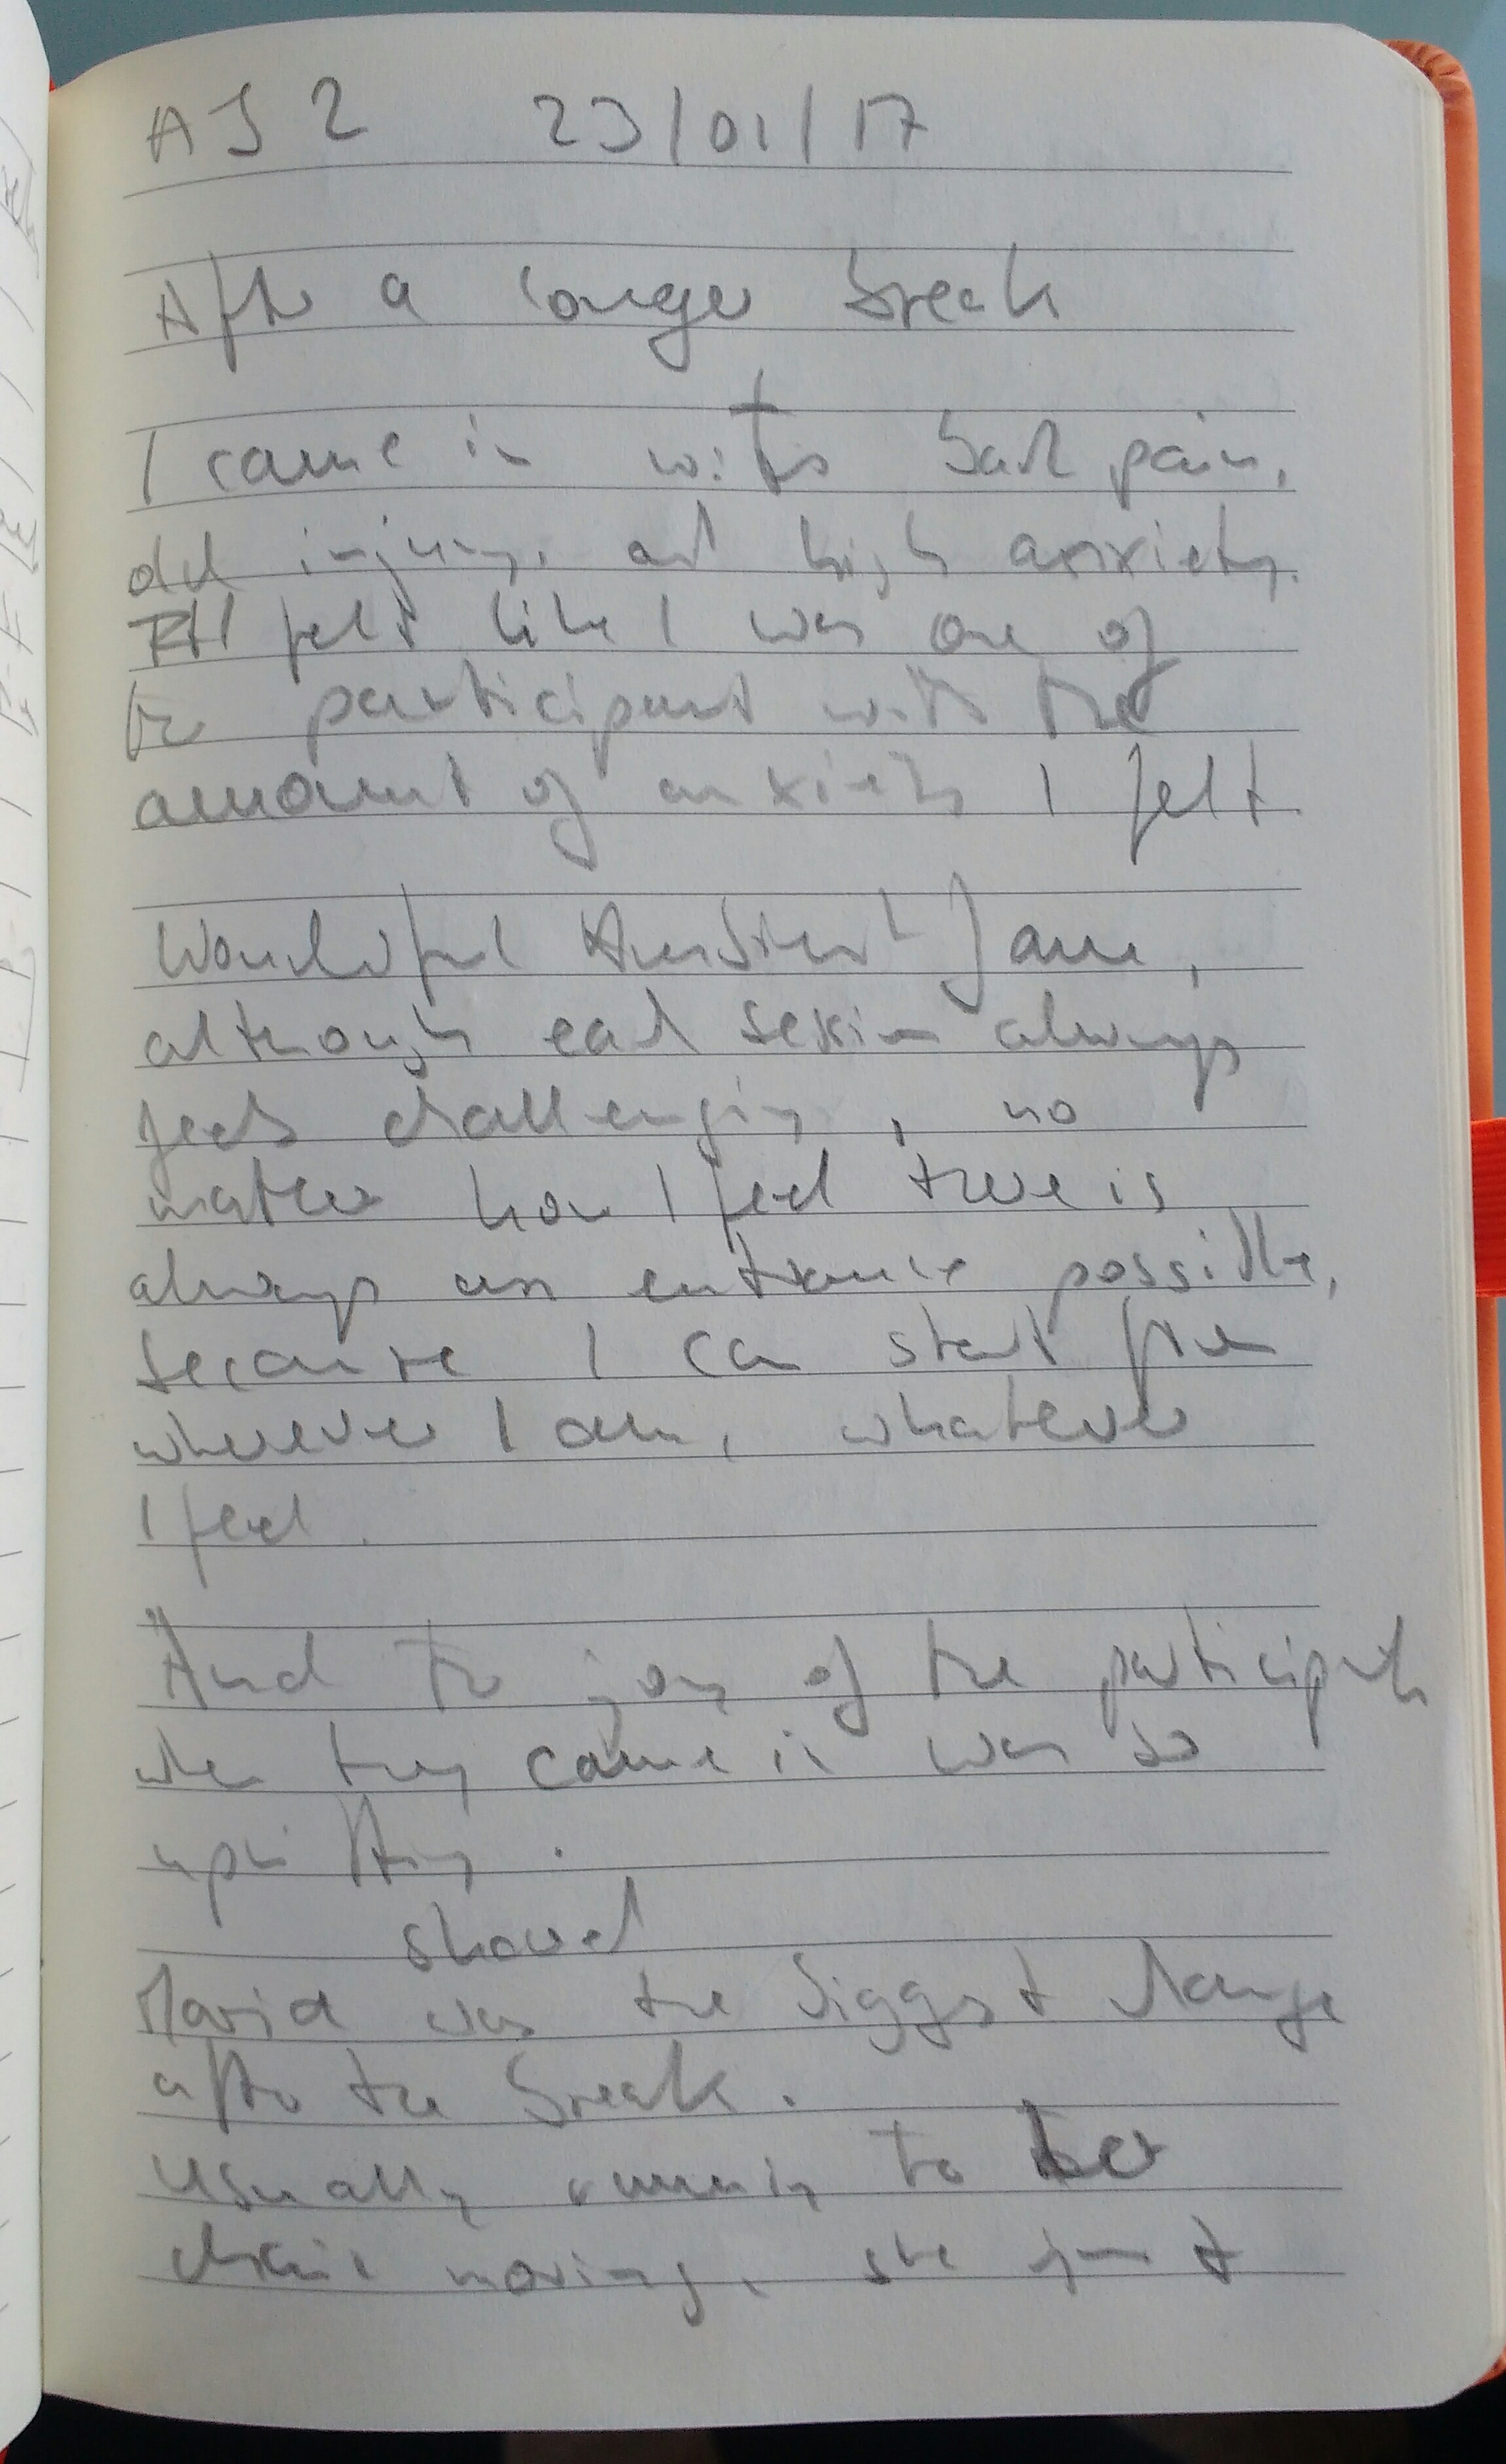 AJ 2 23/01/17
After a longer break
I came in with back pain,
old injury, and high anxiety.
I felt like I was one of
the participant with the
amount of anxiety I felt
Wonderful Jane,
although each session always
feels challenging, no
matter how I feel there is
always an entrance possible,
because I can start from
wherever I am, whatever
I feel.
And the joy of the participants
when they came in was so
uplifting.
showed
Maria was the biggest change
after the break.
Usually running to her
chair moving, she just